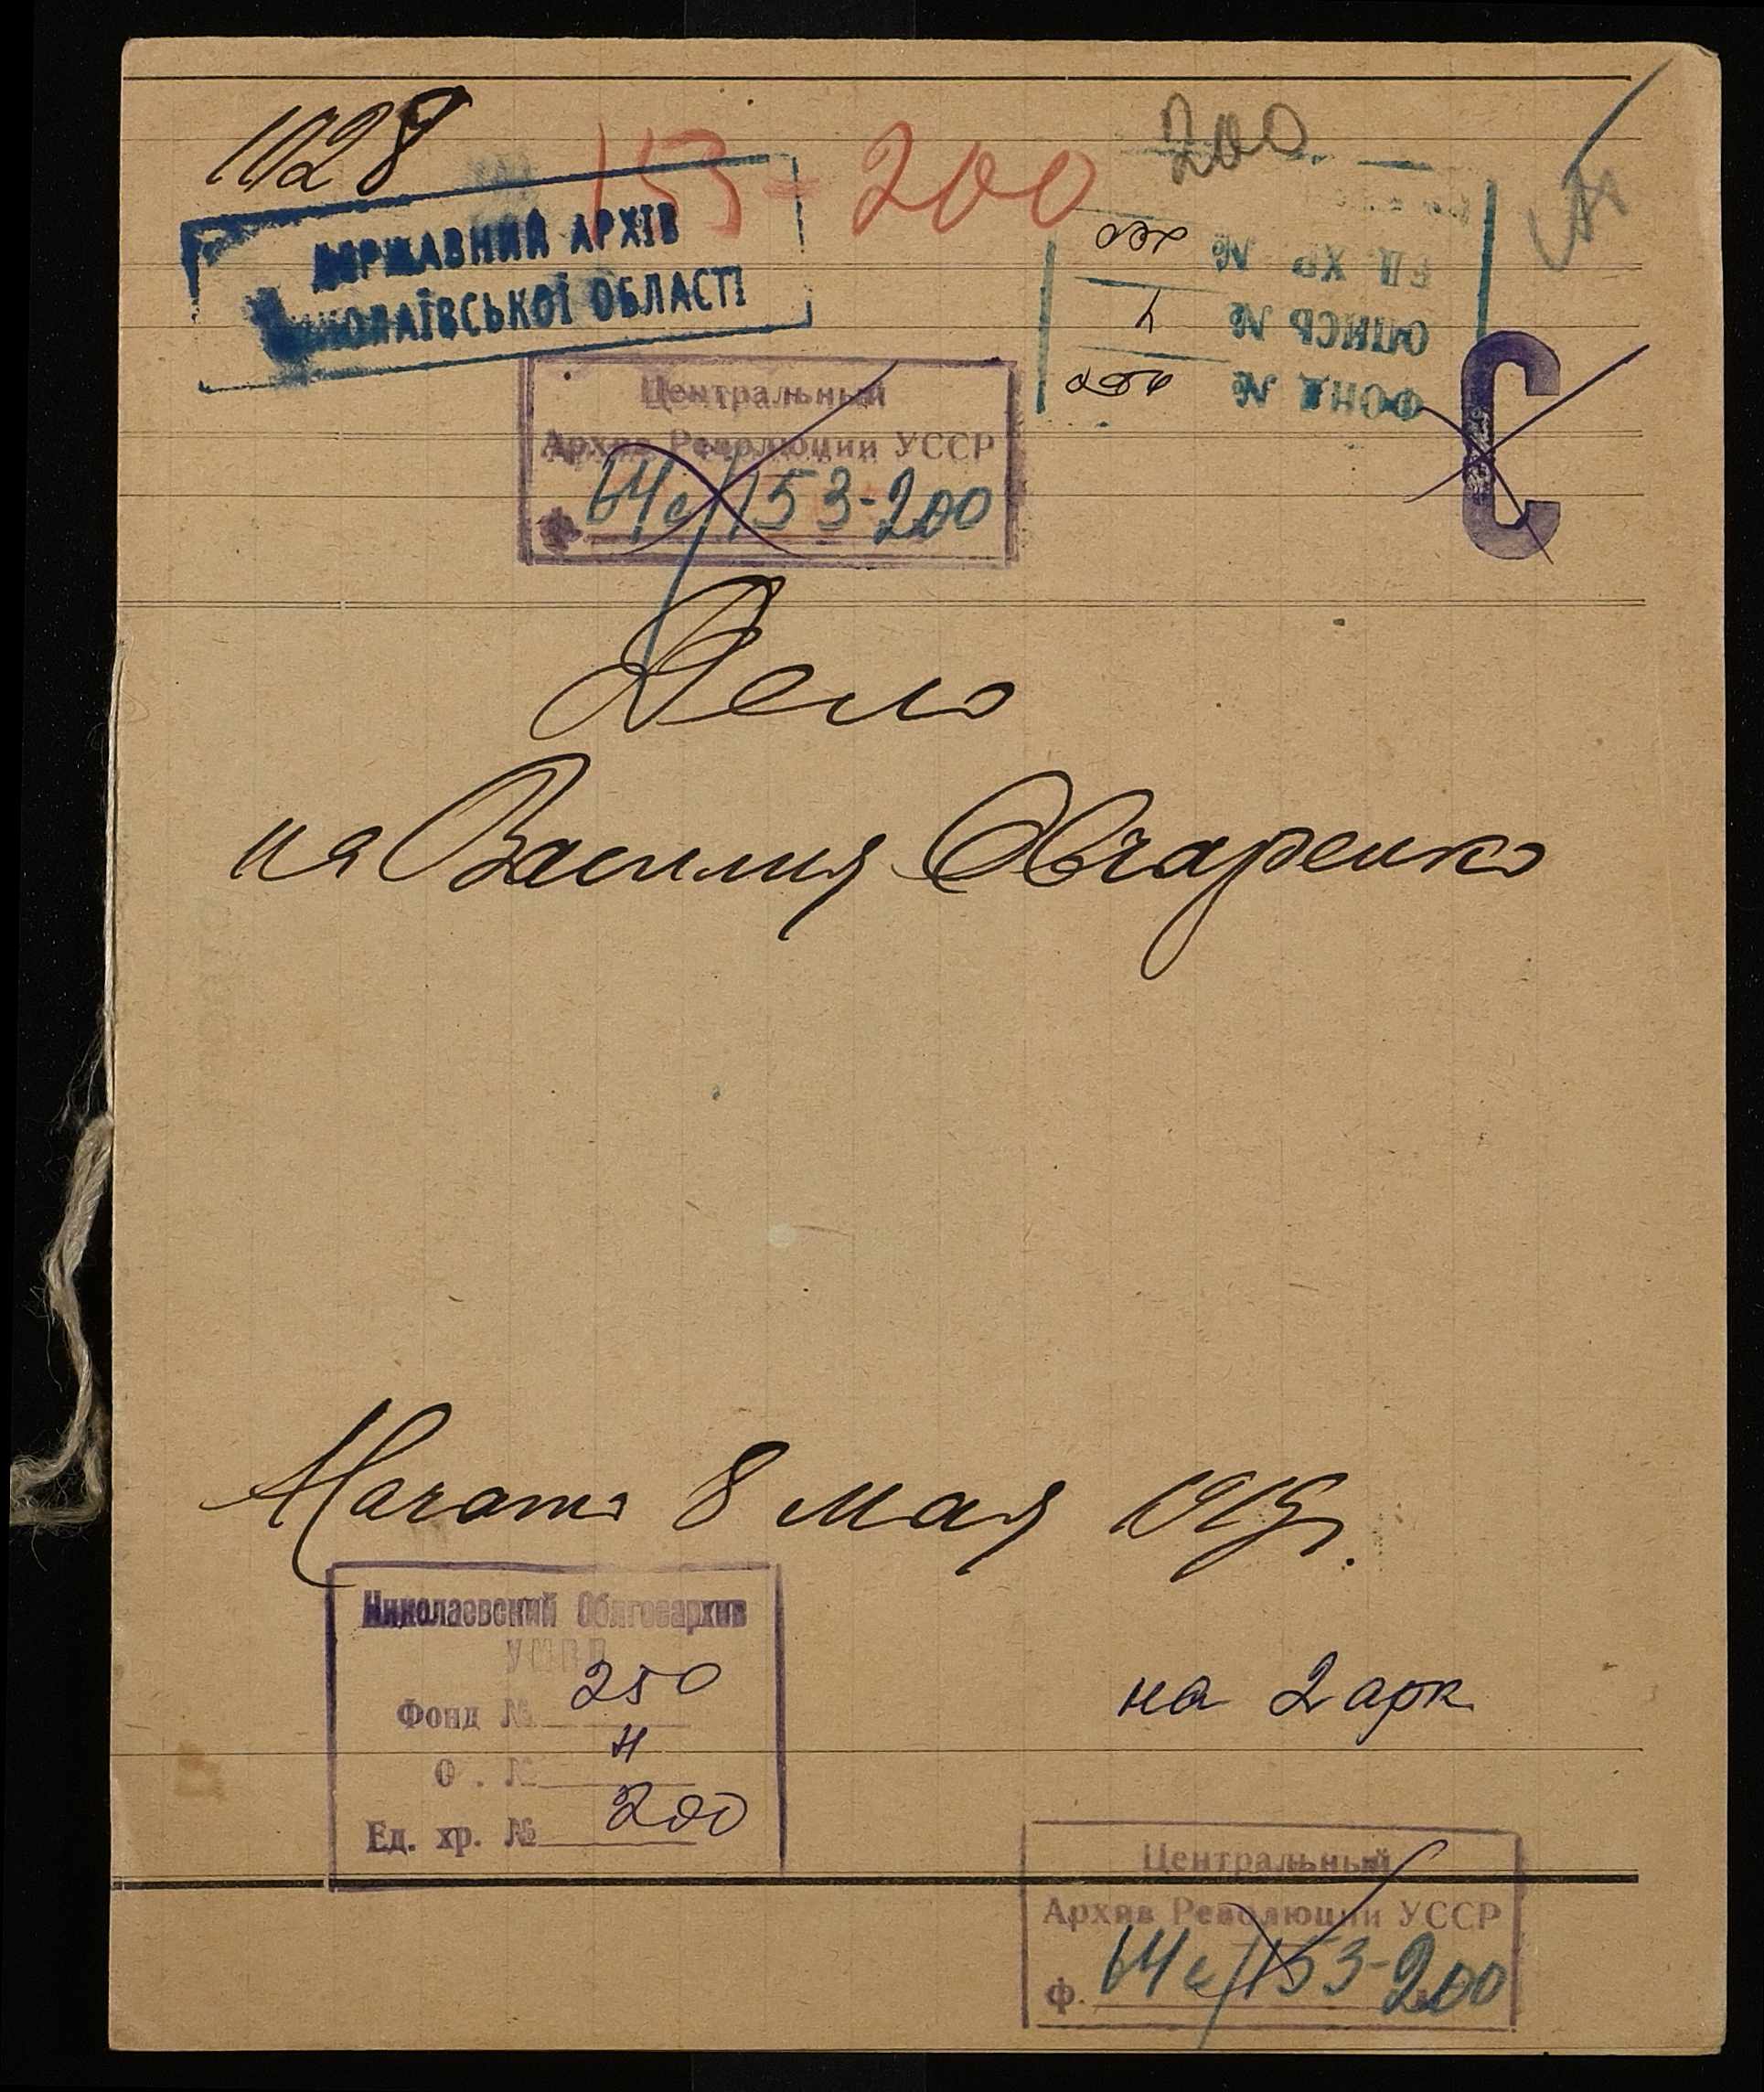 1028
153-200
200
ДЕРЖАВНИЙ АРХІВ
МИКОЛАЇВСЬКОЇ ОБЛАСТІ
ЕД. ХР №
ОПИСЬ № 4
ФОНД № 250
С
Центральный
Архив Революции УССР
ф. 64с/153-200
Дело
на Василия Овчаренко
Начато 8 мая 1919г.
Николаевский Облгосархив
УМВД
Фонд № 250
О . № 4
Ед. хр. № 200
на 2 арк
Центральный
Архив Революции УССР
ф. 64с/153-200